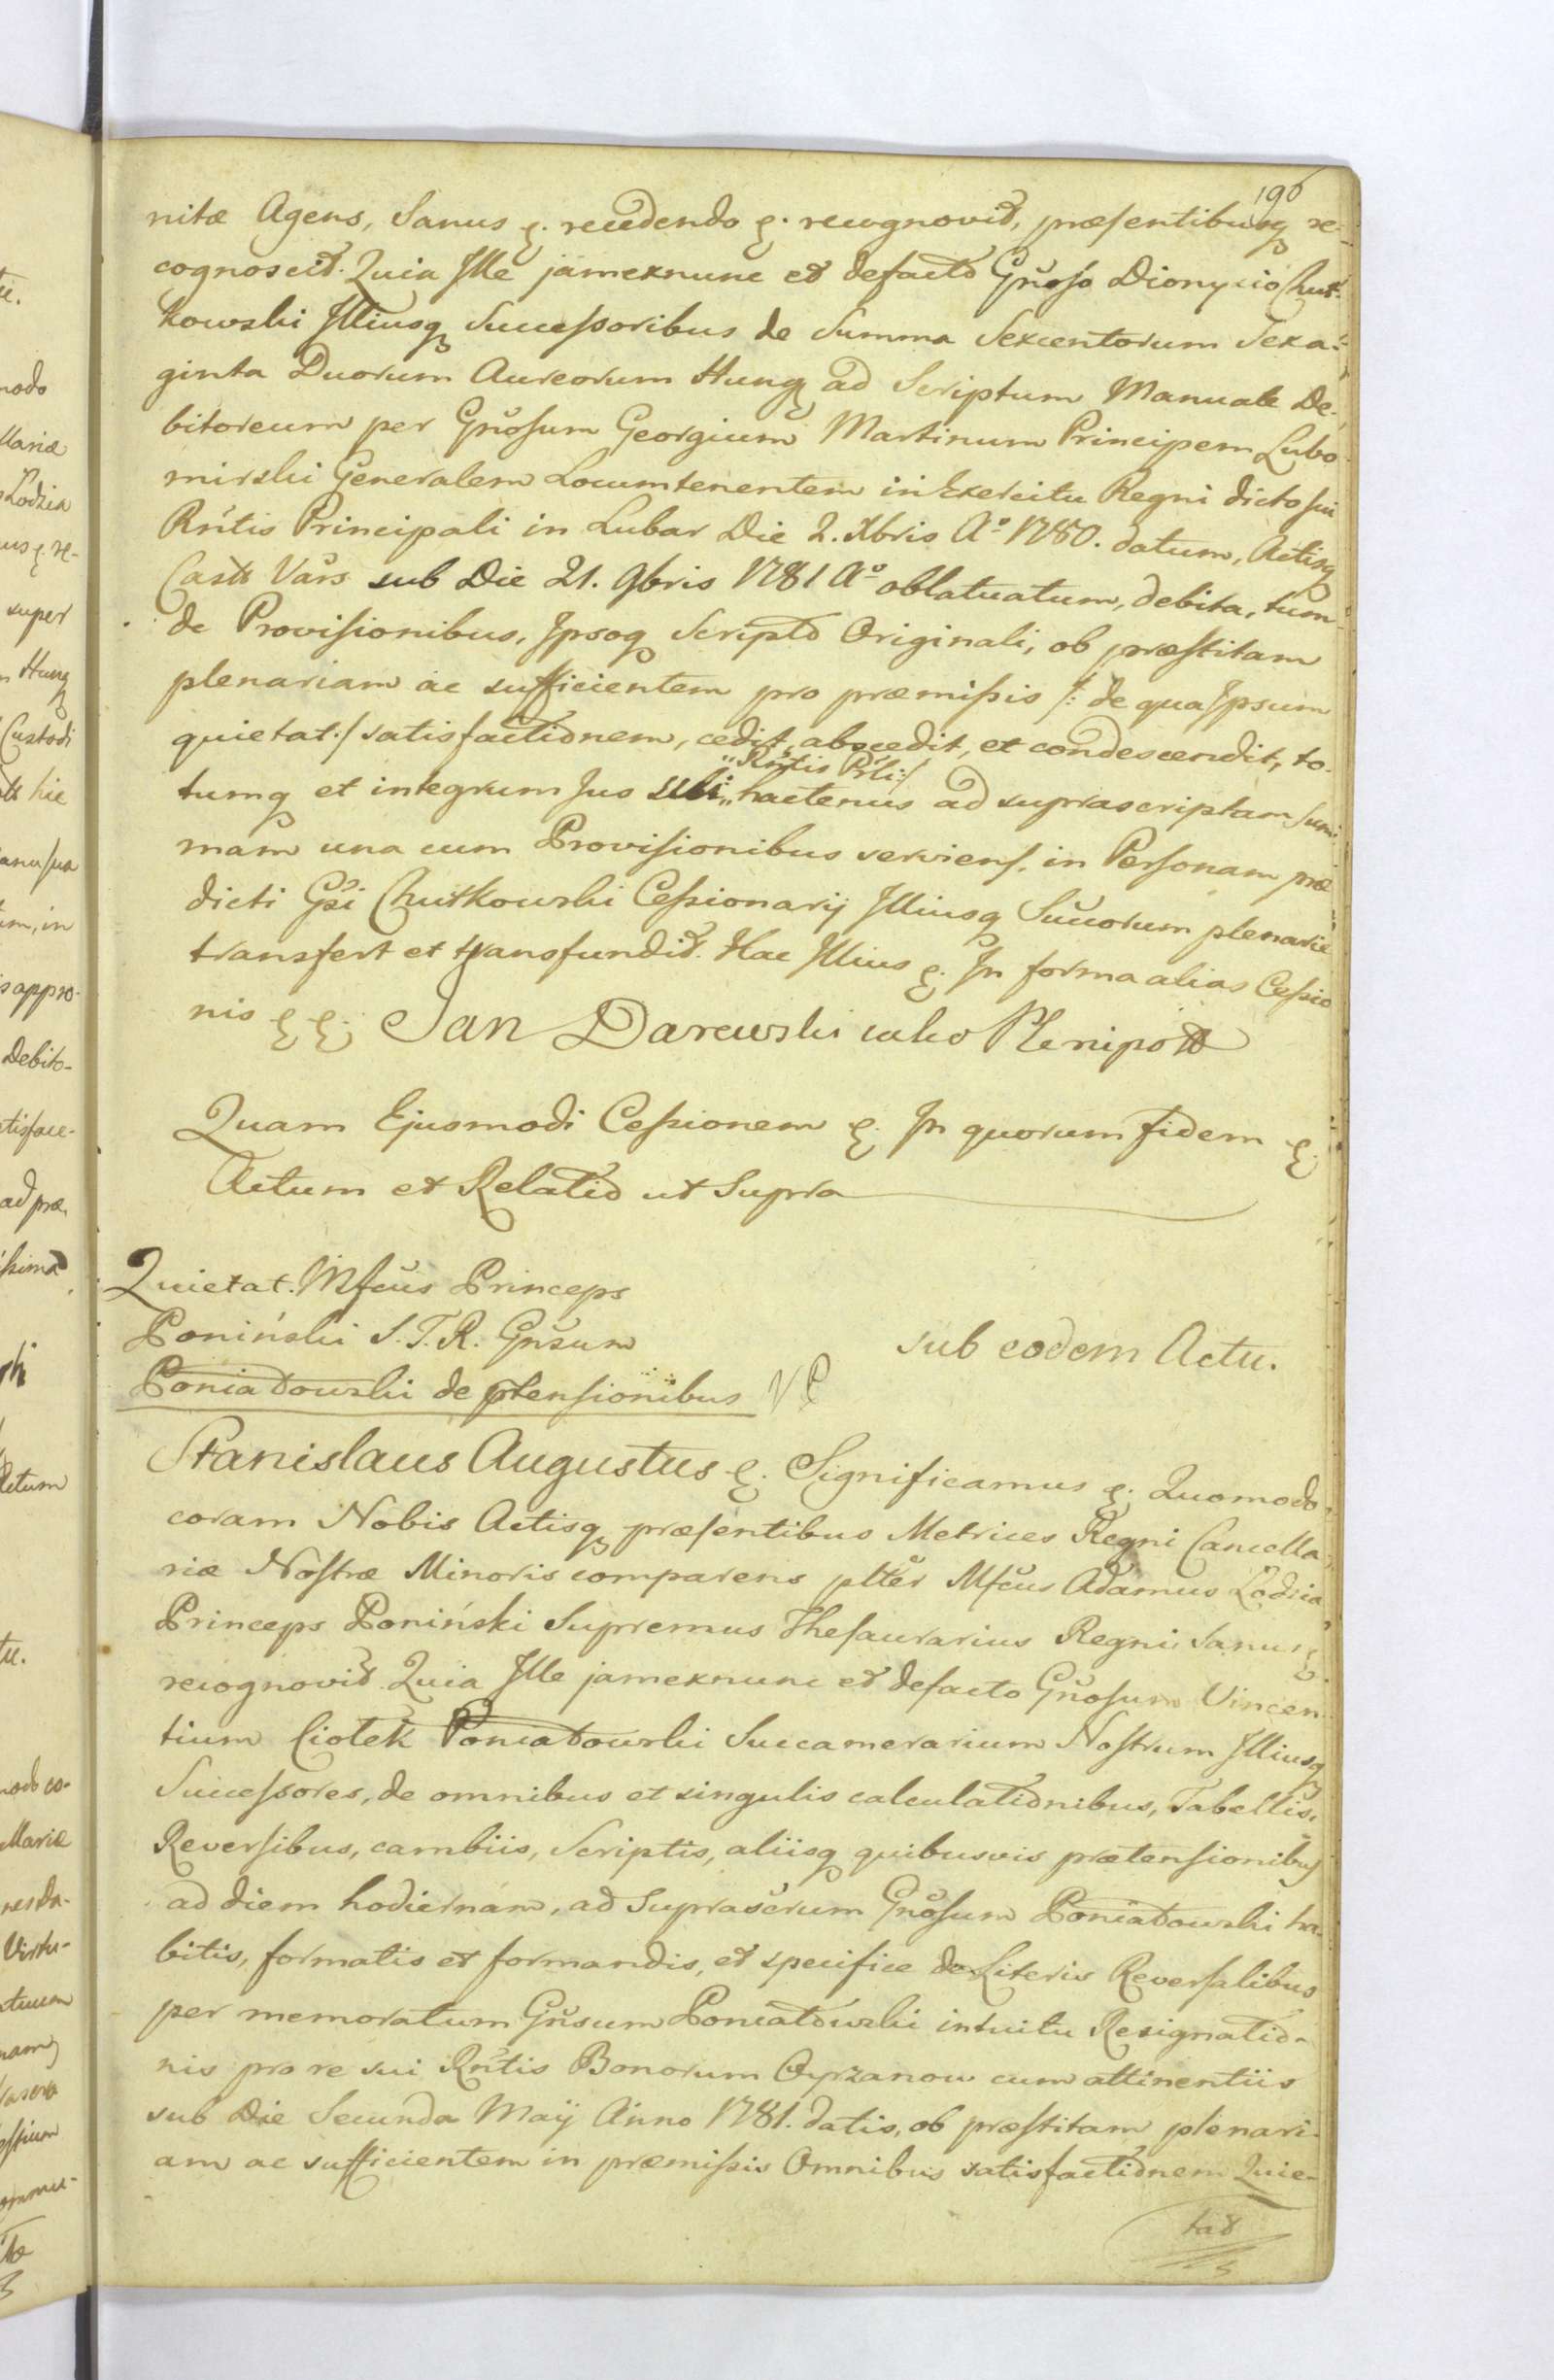 190
nitæ Agens, Sanus &. recedendo &. recognovit, præsentibusq re-
cognoscit. Quia Ille jamexnunc et defacto Gnoso Dionysio Chut-
kowski Illiusq Successoribus de Summa Sexcentorum Sexa-
ginta Duorum Aureorum Hung ad Scriptum Manuale De-
bitoreum per Gnosum Georgium Martinum Principem Lubo-
mirski Generalem Locumtenentem in Exercitu Regni dicto sui
Rntis Principali in Lubar Die 2. Xbris Aº 1780. datum, Actisq
Castr Vars sub Die 21. 9bris 1781 Aº oblatuatum, debita, tum
de Provisionibus, Ipsoq Scripto Originali, ob præstitam
plenariam ac sufficientem pro præmissis /: de qua Ipsum
quietat :/ satisfactionem, cedit, abscedit, et condescendit, to-
„Rntis Prli:/
tumq et integrum Jus sibi„ hactenus ad suprascriptam sum-
mam una cum Provisionibus serviens, in Personam præ
dicti Gsi Chutkowski Cessionarij Illiusq Succorum plenarie
transfert et transfundit. Hac Illius &. In forma alias Cessio
nis & &. Jan Darewski iako Plenipott
Quam Ejusmodi Cessionem &. In quorum fidem &.
Actum et Relatio ut Supra
Quietat. Mfcus Princeps
Poniński S. T. R. Gnsum
Poniatowski de ptensionibus
sub eodem Actu.
Stanislaus Augustus &. Significamus &. Quomodo
coram Nobis Actisq præsentibus Metrices Regni Cancella-
riæ Nostræ Minoris comparens pltter Mfcus Adamus Lodzia
Princeps Poniński Supremus Thesaurarius Regni Sanus &
recognovit Quia Ille jamexnunc et defacto Gnosum Vincen
tium Ciołek Poniatowski Succamerarium Nostrum Illiusq
Successores, de omnibus et singulis calculationibus, Tabellis,
Reversibus, cambiis, Scriptis, aliisq quibusvis prætensionibus
ad diem hodiernam, ad Suprascrum Gnosum Poniatowski ha-
bitis, formatis et formandis, et specifice de Literis Reversalibus
per memoratum Gnsum Poniatowski intuitu Resignatio-
nis pro re sui Rntis Bonorum Oyrzanow cum attinentiis
sub Die Secunda Maij Anno 1781. datis, ob præstitam plenari-
am ac sufficientem in præmissis Omnibus satisfactionem Quie-
tat